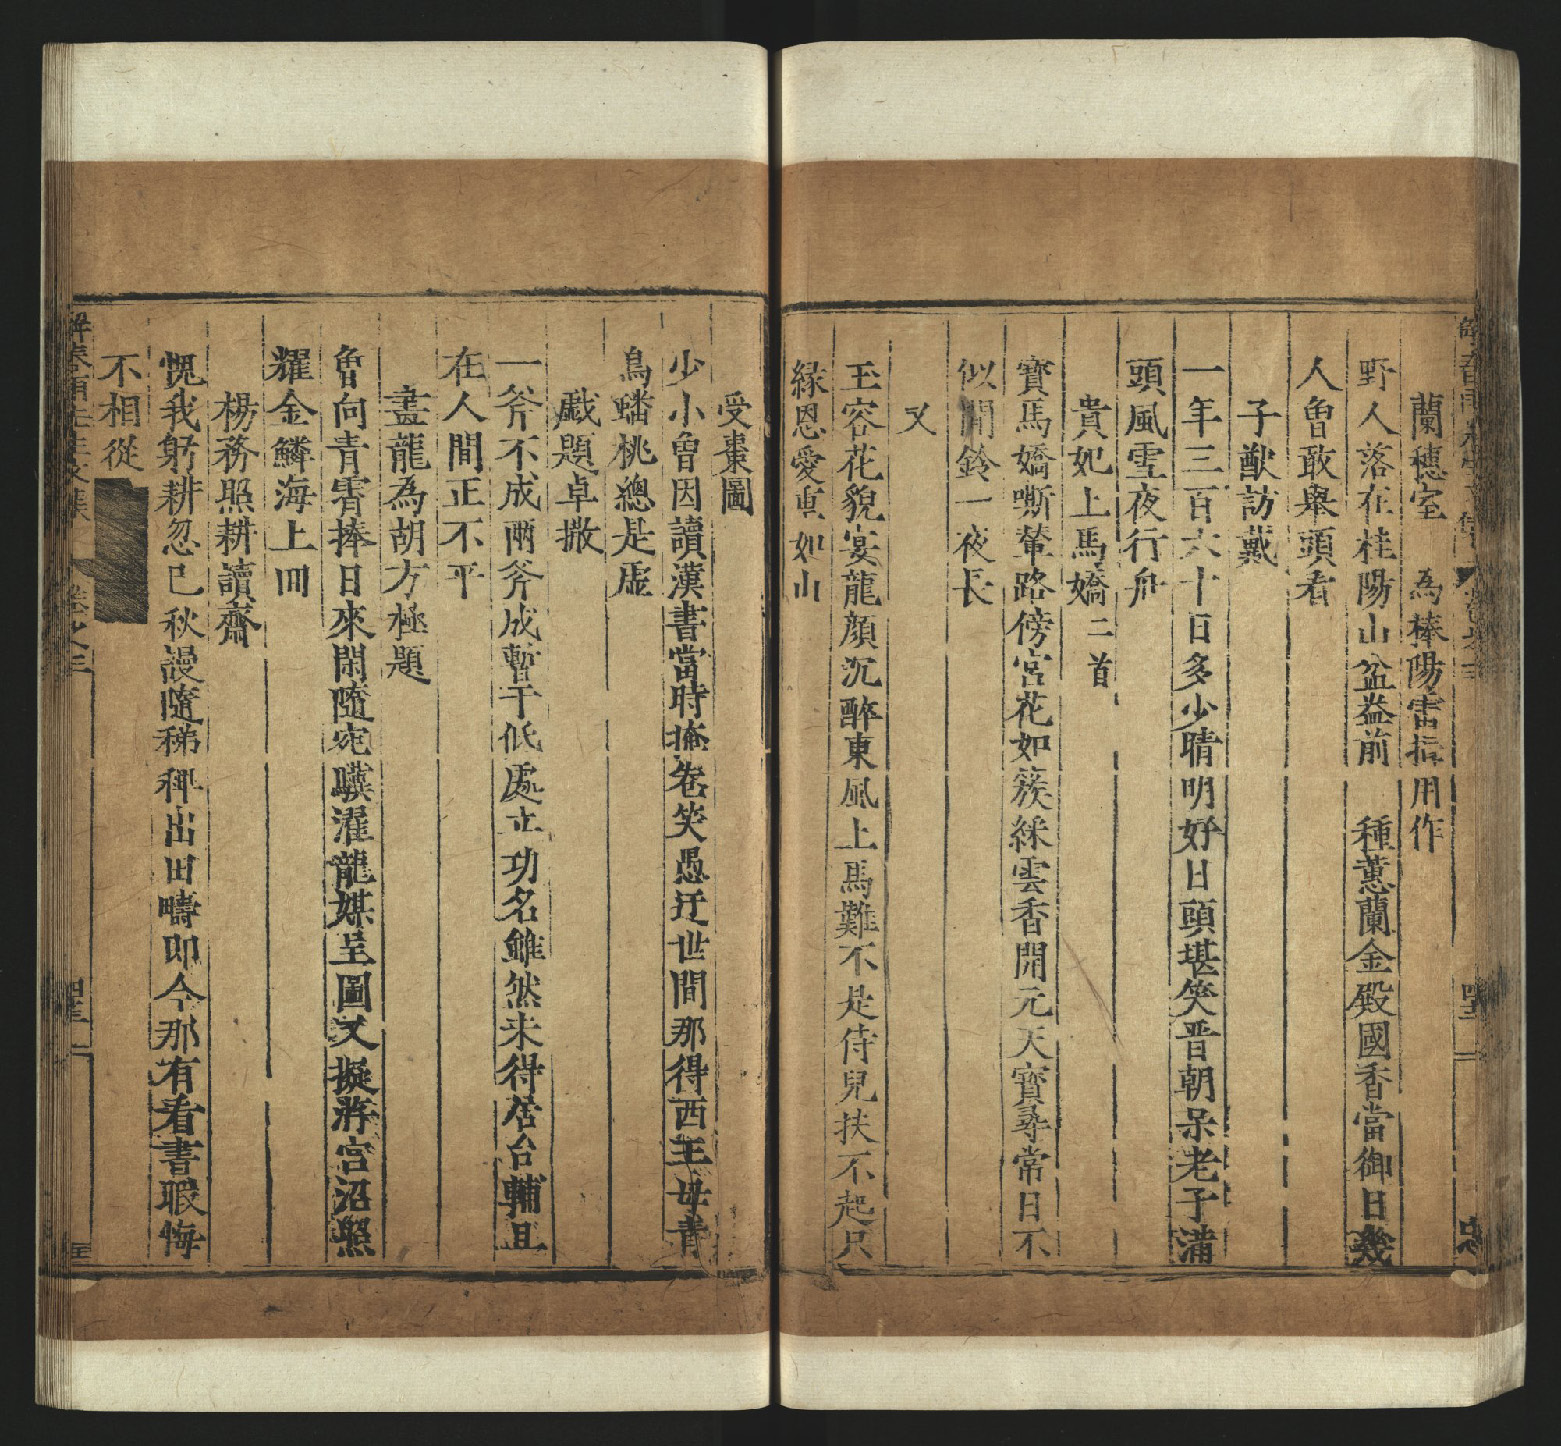 蘭穗室　為棒陽雷指用作
野人落在桂陽山盆益前　種蕙蘭金殿國香當御日幾
人曾敢舉頭看
子猷訪戴
一年三百六十日多少晴明好日頭堪笑晋朝呆老子滿
頭風雪夜行舟
貴妃上馬嬌二首
寶馬嬌嘶輦路傍宮花如簇綵雲香開元天寶尋常日不
似聞鈴一夜長
又
玉容花貌宴龍顏沉醉東風上馬難不是侍兒扶不起只
緣恩愛重如山
受棗圖
少小曾因讀漢書當時掩卷笑愚迂世間那得西王母青
鳥蟠桃總是虛
戱題卓撒
一斧不成兩斧成暫于低處立功名雖然未得居台輔且
在人間正不平
畫龍為胡方極題
曾向青霄捧日來閑隨宛驥濯龍媒呈圖又擬將宮沼照
耀金鱗海上囬
楊務照耕讀齋
愧我躬耕忽已秋謾隨稊稗出田疇即今那有看書暇悔
不相從
解春雨先生文集　卷之三